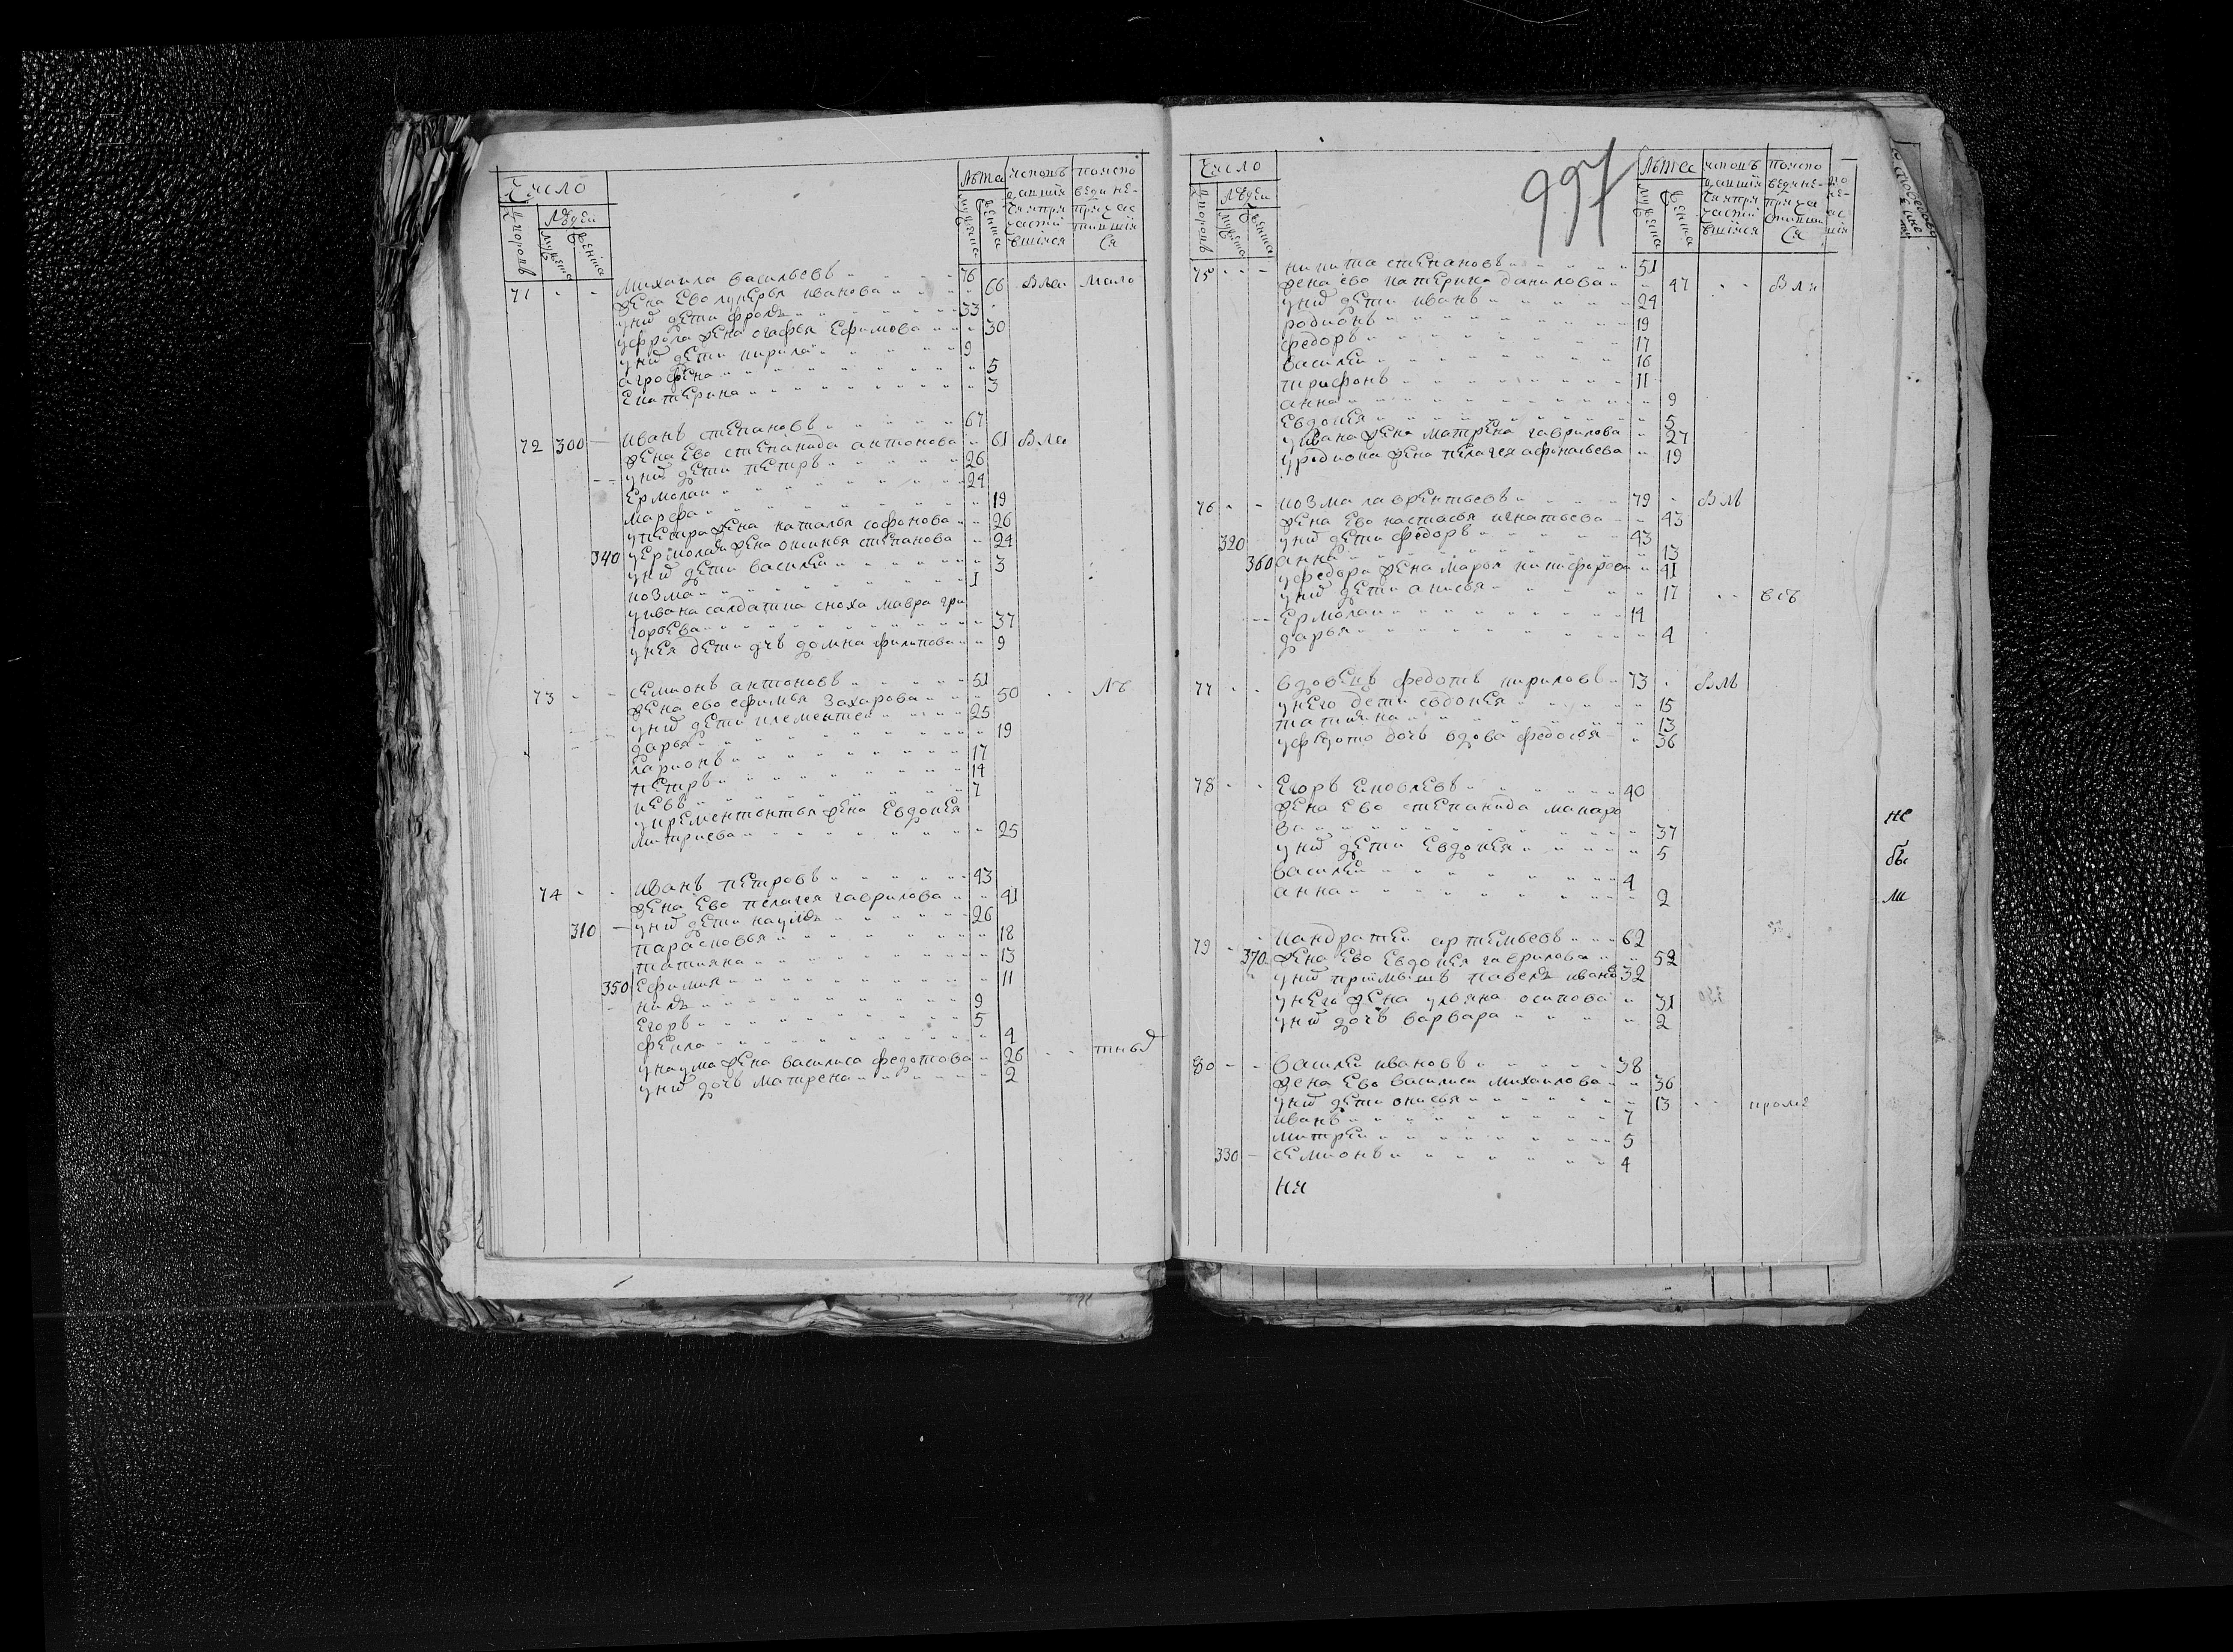 Число
Людеи
Дворовъ
Мужеска
Женска
Лѣта
Мужеска
Женска
71 - - Михаила васильевъ 76
жена Ево лукерья иванова 66 Вла мало
унихъ дети фролъ 33
уфрола жена огафья Ефимова 30
унихъ дети кирила 9
агрофена 5
Екатерина 3
72 300 иванъ степановъ 67
жена Ево степанида антонова 61 Вла
унихъ дети петиръ 26
Ермолаи 24
марфа 19
упетра жена наталья софонова 26
340 уермолая жена аксинья степанова 24
унихъ дети василеи 3
козма 1
уивана салдатика сноха мавра гри
горЕва 37
унея дети дчь домна филипова 9
73 - - семионъ антоновъ 51
жена ево ефимья захарова 50 лѣ
унихъ дети клементеи 25
дарья 19
ларионъ 17
петръ 14
левъ 7
уклементентья жена Евдокея
митриева 25
74 - - иванъ петровъ 43
жена Ево пелагея гаврилова 41
310 унихъ дети наумъ 26
парасковья 18
татияна 13
350 Ефимия 11
нилъ 9
Егоръ 5
фекла 4
унаума жена василиса федотова 26 тнъ
унихъ дочь матрена 2
997
Число
Людеи
Дворовъ
Мужеска
Женска
Лѣта
Мужеска
Женска
75 - - никита степановъ 51
жена ево катерина данилова 47 Вля
унихъ дети иванъ 24
родионъ 19
федоръ 17
василеи 16
трифонъ 11
анна 9
Евдокея 5
уивана жена матрена гаврилова 27
уродиона жена пелагея афонасьева 19
76 - - козма лаврентьевъ 79 - ВМ
жена Ево настасья игнатьева 43
320 унихъ дети федоръ 43
360 анна 13
уфедора жена марья никифорова 41
унихъ дети анисья 17 всѣ
Ермолаи 14
дарья 4
77 - - вдовецъ федотъ кириловъ 73 ВМ
унего дети евдокея 15
татияна 13
уфедота дочь вдова федосья 36
78 - - Егоръ Ековлевъ 40
жена Ево степанида макаро
ва 37
унихъ дети Евдокея 5
василеи 4
анна 2
не
бы
ли
79 - кандратеи артемьевъ 62
370 жена Ево Евдокея гаврилова 52
унихъ приемышъ павелъ ивано 32
унего жена ульяна осипова 31
унихъ дочь варвара 2
80 - - василеи ивановъ 38
жена Ево василиса михаилова 36
унихъ дети онисья 13 кроме
иванъ 7
митреи 5
330 семионъ 4
ня